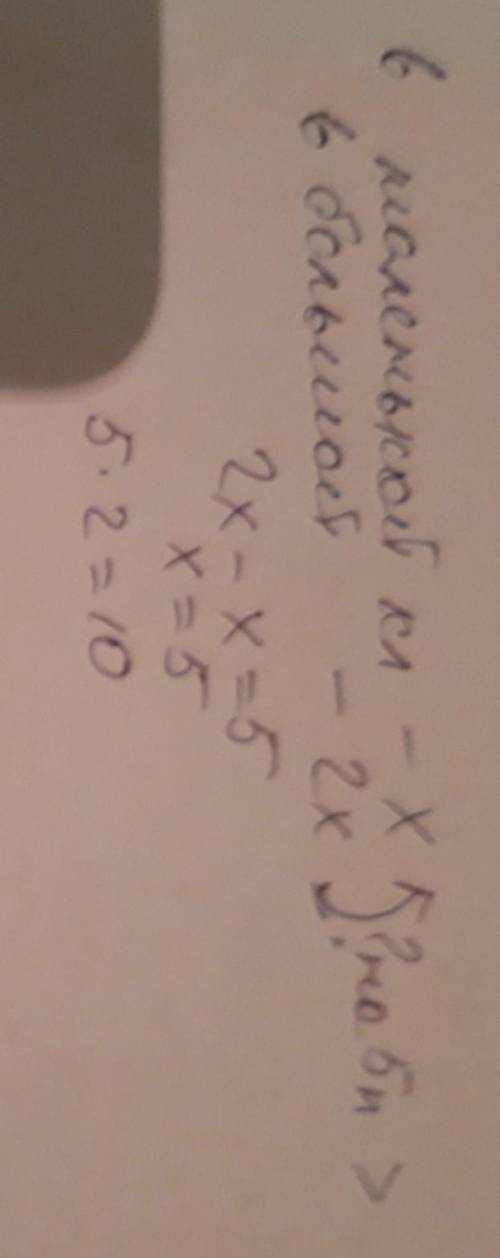 в маленькой кл - x
в большой - 2x } ? на 5 п >
2x - x = 5
x = 5
5 · 2 = 10